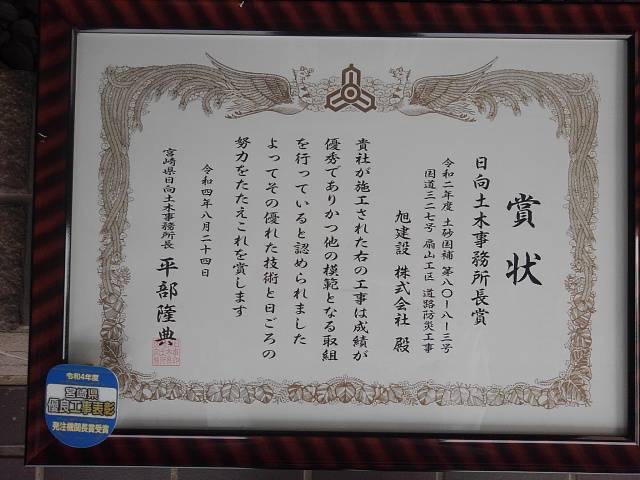 賞状
日向土木事務所長賞
令和二年度 土砂国補 第八〇ー八ー三号
国道三二七号 扇山工区 道路防災工事
旭建設 株式会社 殿
貴社が施工された右の工事は成績が
優秀でありかつ他の模範となる取組
を行っていると認められました
よってその優れた技術と日ごろの
努力をたたえこれを賞します
令和四年八月二十四日
宮崎県日向土木事務所長 平部隆典
令和4年度
宮崎県
優良工事表彰
発注機関長賞受賞